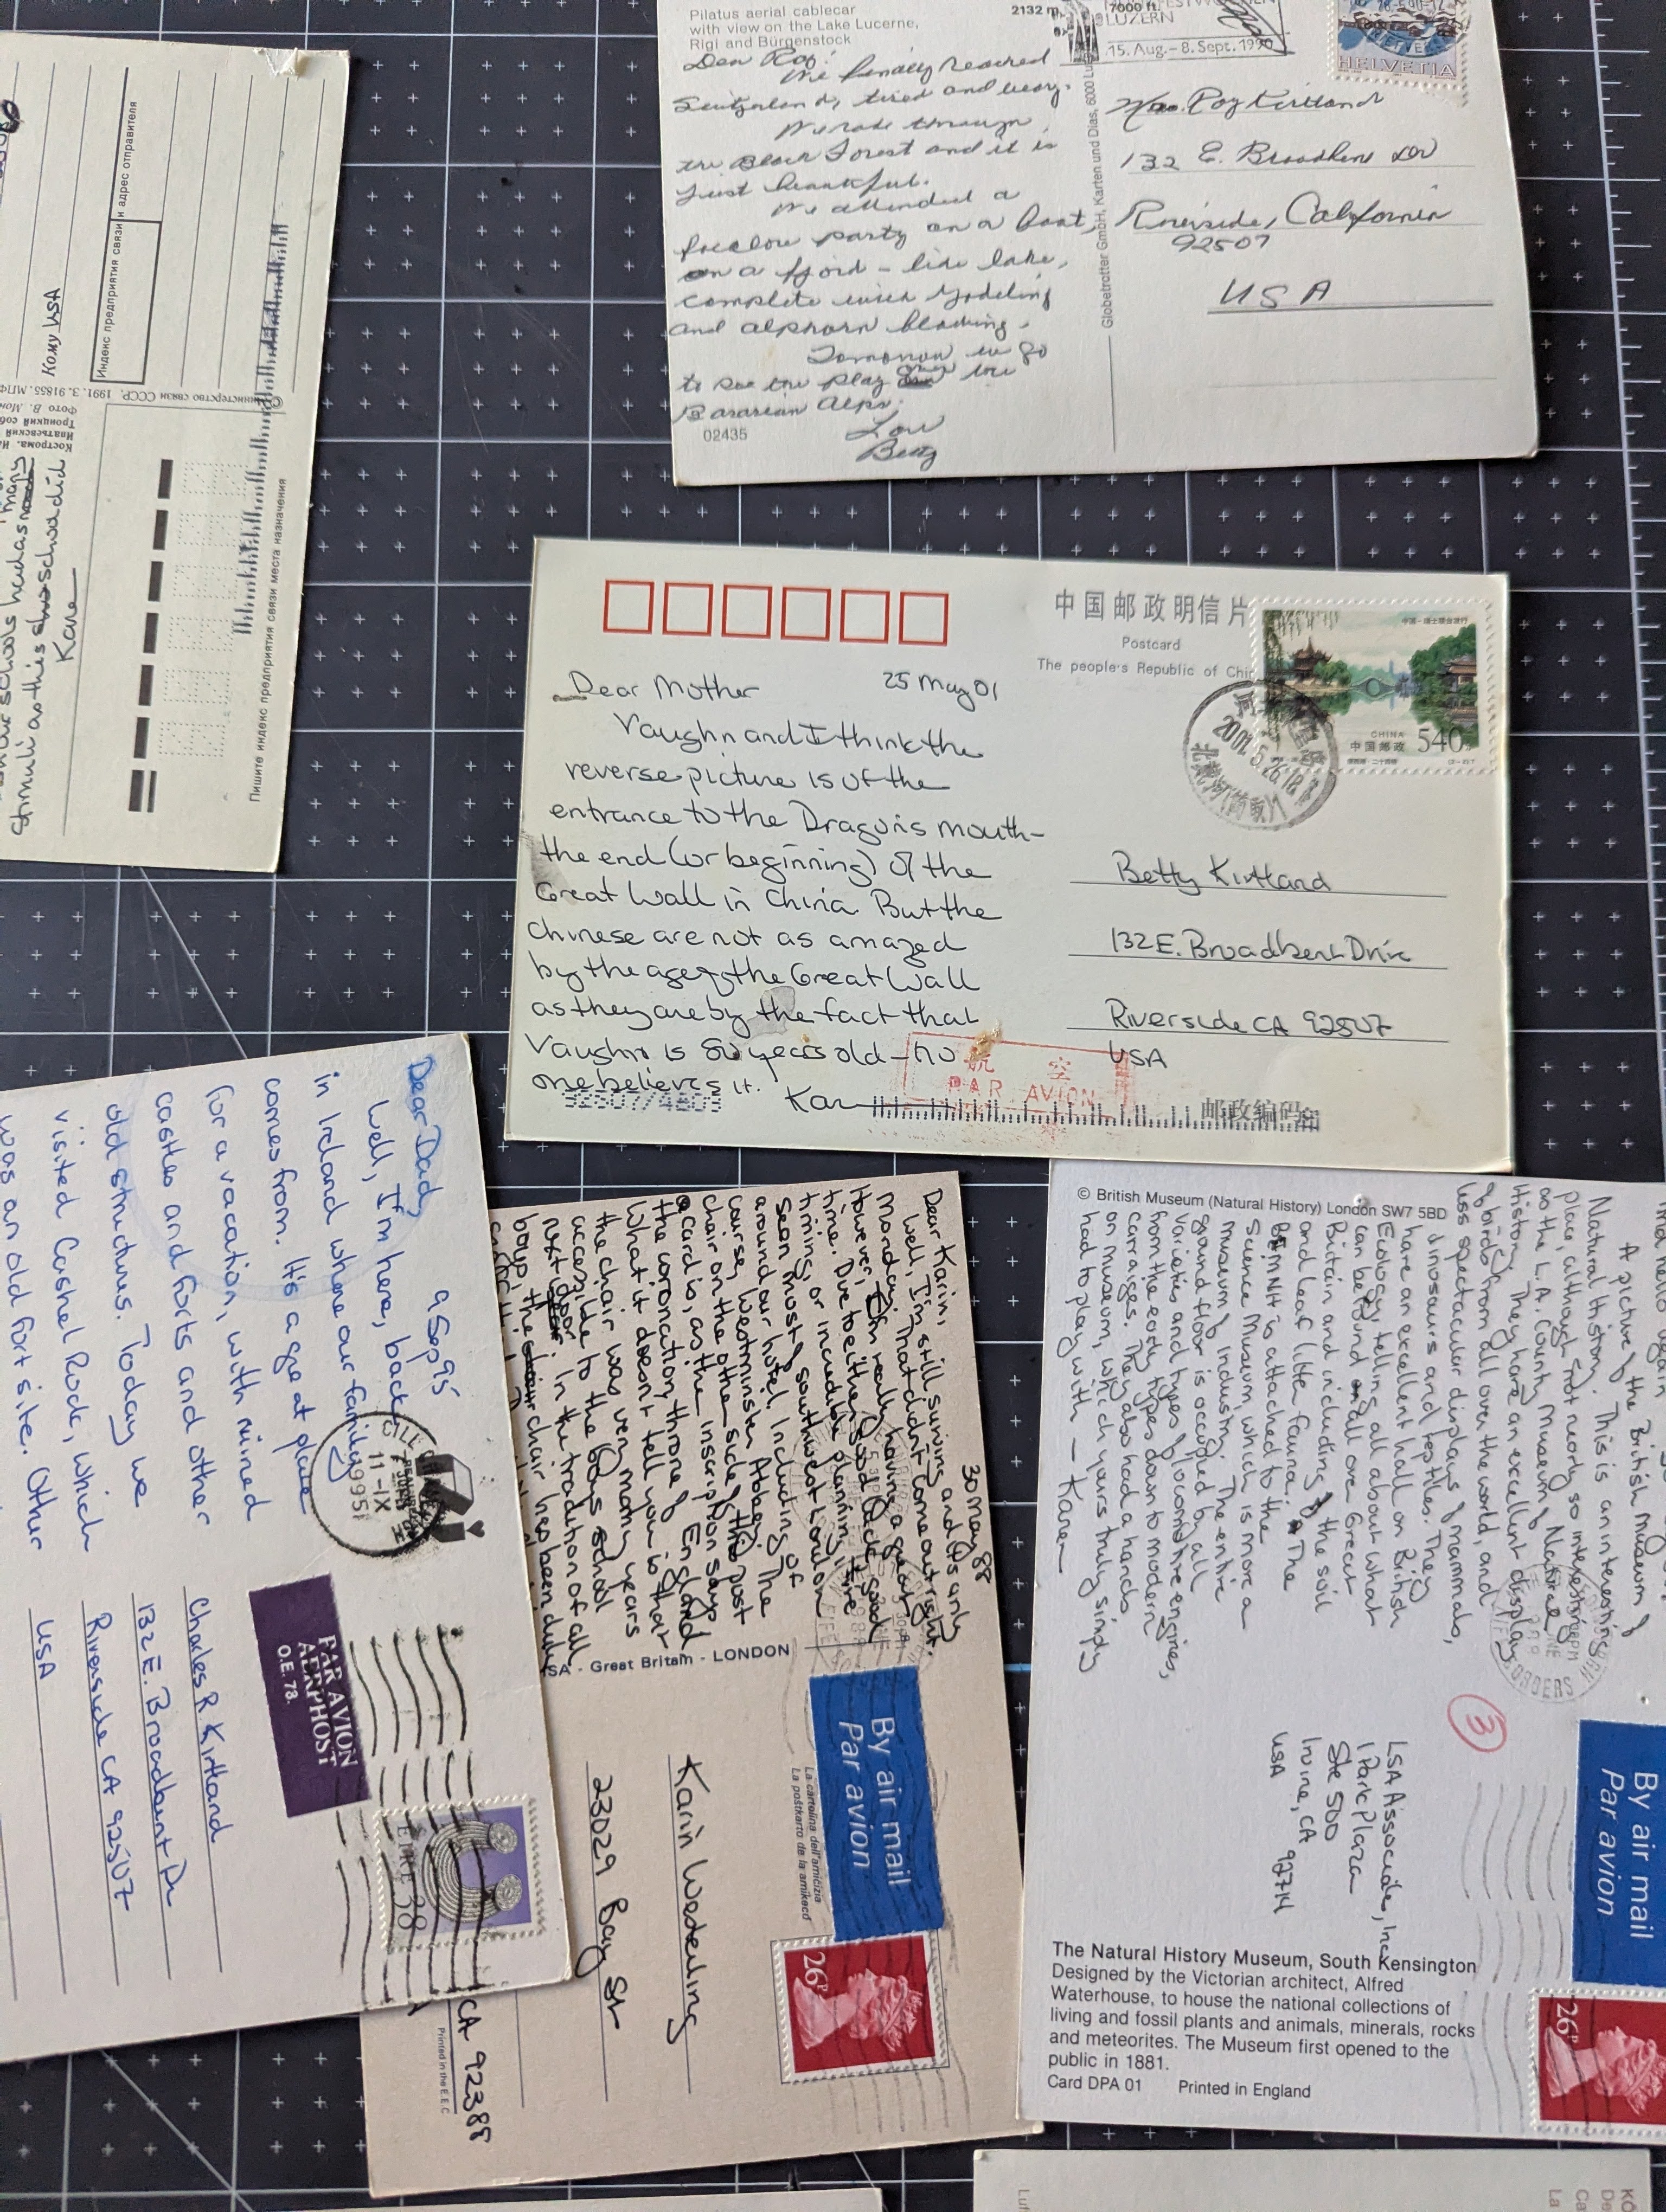 Pilatus aerial cablecar
with view on the Lake Lucerne,
Rigi and Bürgenstock
2132 m
7000 ft.
LUZERN
15. Aug. – 8. Sept. 1990
HELVETIA
Dear Roy:
We finally reached
Switzerland, tired and weary.
We rode through
the Black Forest and it is
just beautiful.
We attended a
folclore party on a boat,
on a fjord - like lake,
complete with yodeling
and alphorn blowing.
Tomorrow we go
to see the play
Bavarian Alps.
Love
Betty
02435
Globetrotter GmbH, Karten und Dias, 6000 Lu
Roy Kirtland
132 E. Broadbent Dr
Riverside, California
92507
USA
Кому USA
Индекс предприятия связи и адрес отправителя
© Министерство связи СССР. 1991. З. 91855. МПФ
Фото В.
Кострома.
Ипатьевский
Троицкий соб
many
schools had as
stimuli as this school did
Kare
Пишите индекс предприятия связи места назначения
中国邮政明信片
Postcard
The people's Republic of Chin
中国邮政
CHINA
540
2001.5.26.18
Dear Mother 25 May 01
Vaughn and I think the
reverse picture is of the
entrance to the Dragon's mouth -
the end (or beginning) of the
Great Wall in China. But the
Chinese are not as amazed
by the age of the Great Wall
as they are by the fact that
Vaughn is 80 years old - no
one believes it. Kare
92507/4803
Betty Kirtland
132 E. Broadbent Drive
Riverside CA 92507
USA
航空
PAR AVION
邮政编码
9 Sep 95
Dear Dady
Well, I'm here, back
in Ireland where our family
comes from. It's a great place
for a vacation, with ruined
castles and forts and other
old structures. Today we
visited Cashel Rock, which
was an old fort site. Other
11-IX
1995
PAR AVION
AERPHOST
O.E. 73.
EIRE 38
Charles R. Kirtland
132 E. Broadbent Dr
Riverside CA 92507
USA
30 May 88
Dear Karin,
Well, I'm still surviving and its only
Monday. That didn't come out right.
However, I'm really having a great
time. Due to either good luck, good
timing, or incredible planning, we've
seen most of southwest London
around our hotel, including of
course, Westminster Abbey. The
chair on the other side of this post
card is, as the inscription says
the coronation throne of England
What it doesn't tell you is that
the chair was very many years
accessible to the boys school
next door. In the tradition of all
boys, the chair has been duly
SA - Great Britain - LONDON
By air mail
Par avion
La cartolina dell'amicizia
La poŝtkarto de la amikeco
26P
Karin Wedeking
23029 Bay St
CA 92388
Printed in the E.E.C
© British Museum (Natural History) London SW7 5BD
A picture of the British Museum of
Natural History. This is an interesting
place, although not nearly so interesting
as the L.A. County Museum of Natural
History. They have an excellent display
of birds from all over the world, and
less spectacular displays of mammals,
dinosaurs and reptiles. They
have an excellent hall on British
Ecology, telling all about what
can be found all over Great
Britain and including the soil
and leaf litter fauna. The
BMNH is attached to the
Science Museum, which is more a
museum of industry. The entire
ground floor is occupied by all
varieties and types of locomotive engines,
from the early types down to modern
carriages. They also had a hands
on museum, which yours truly simply
had to play with — Kare
3
LSA Associates, Inc
1 Park Plaza
Ste 500
Irvine, CA 92714
USA
By air mail
Par avion
26P
The Natural History Museum, South Kensington
Designed by the Victorian architect, Alfred
Waterhouse, to house the national collections of
living and fossil plants and animals, minerals, rocks
and meteorites. The Museum first opened to the
public in 1881.
Card DPA 01 Printed in England